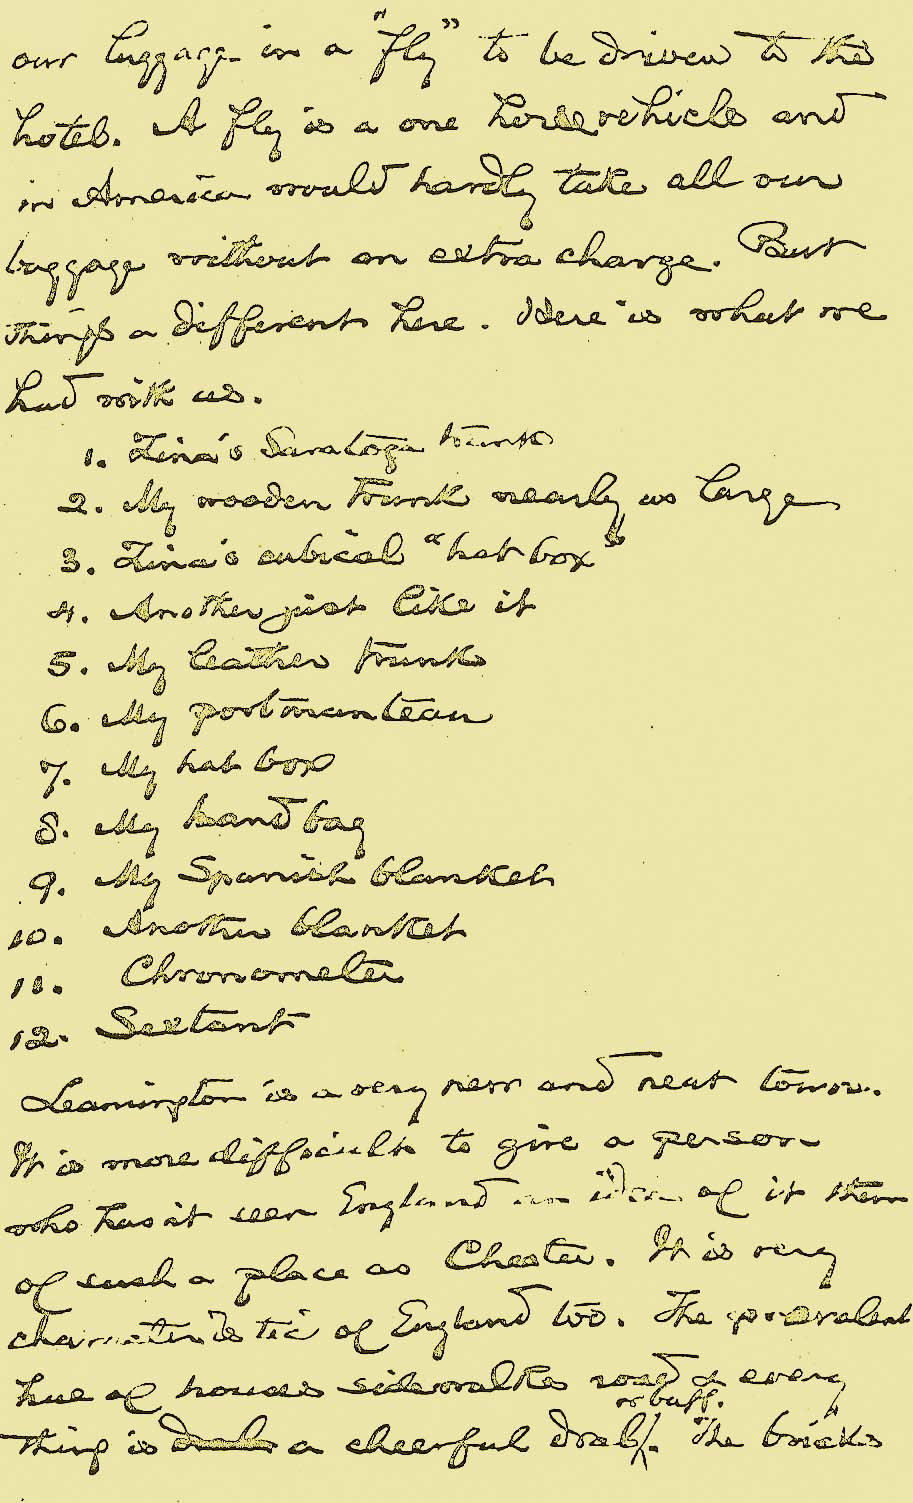 our luggage in a "fly" to be driven to the
hotel. A fly is a one horse vehicle and
in America would hardly take all our
baggage without an extra charge. But
things a different here. Here is what we
had with us.
1. Zina's Saratoga trunk
2. My wooden trunk nearly as large
3. Zina's cubical "hat box"
4. Another just like it
5. My leather trunk
6. My portmanteau
7. My hat box
8. My hand bag
9. My Spanish blanket
10. Another blanket
11. Chronometer
12. Sextant
Leamington is a very new and neat town.
It is more difficult to give a person
who hasn't seen England an idea of it then
of such a place as Chester. It is very
characteristic of England too. The prevalent
hue of houses sidewalks road & every
or buff.
thing is drab a cheerful drab. The bricks